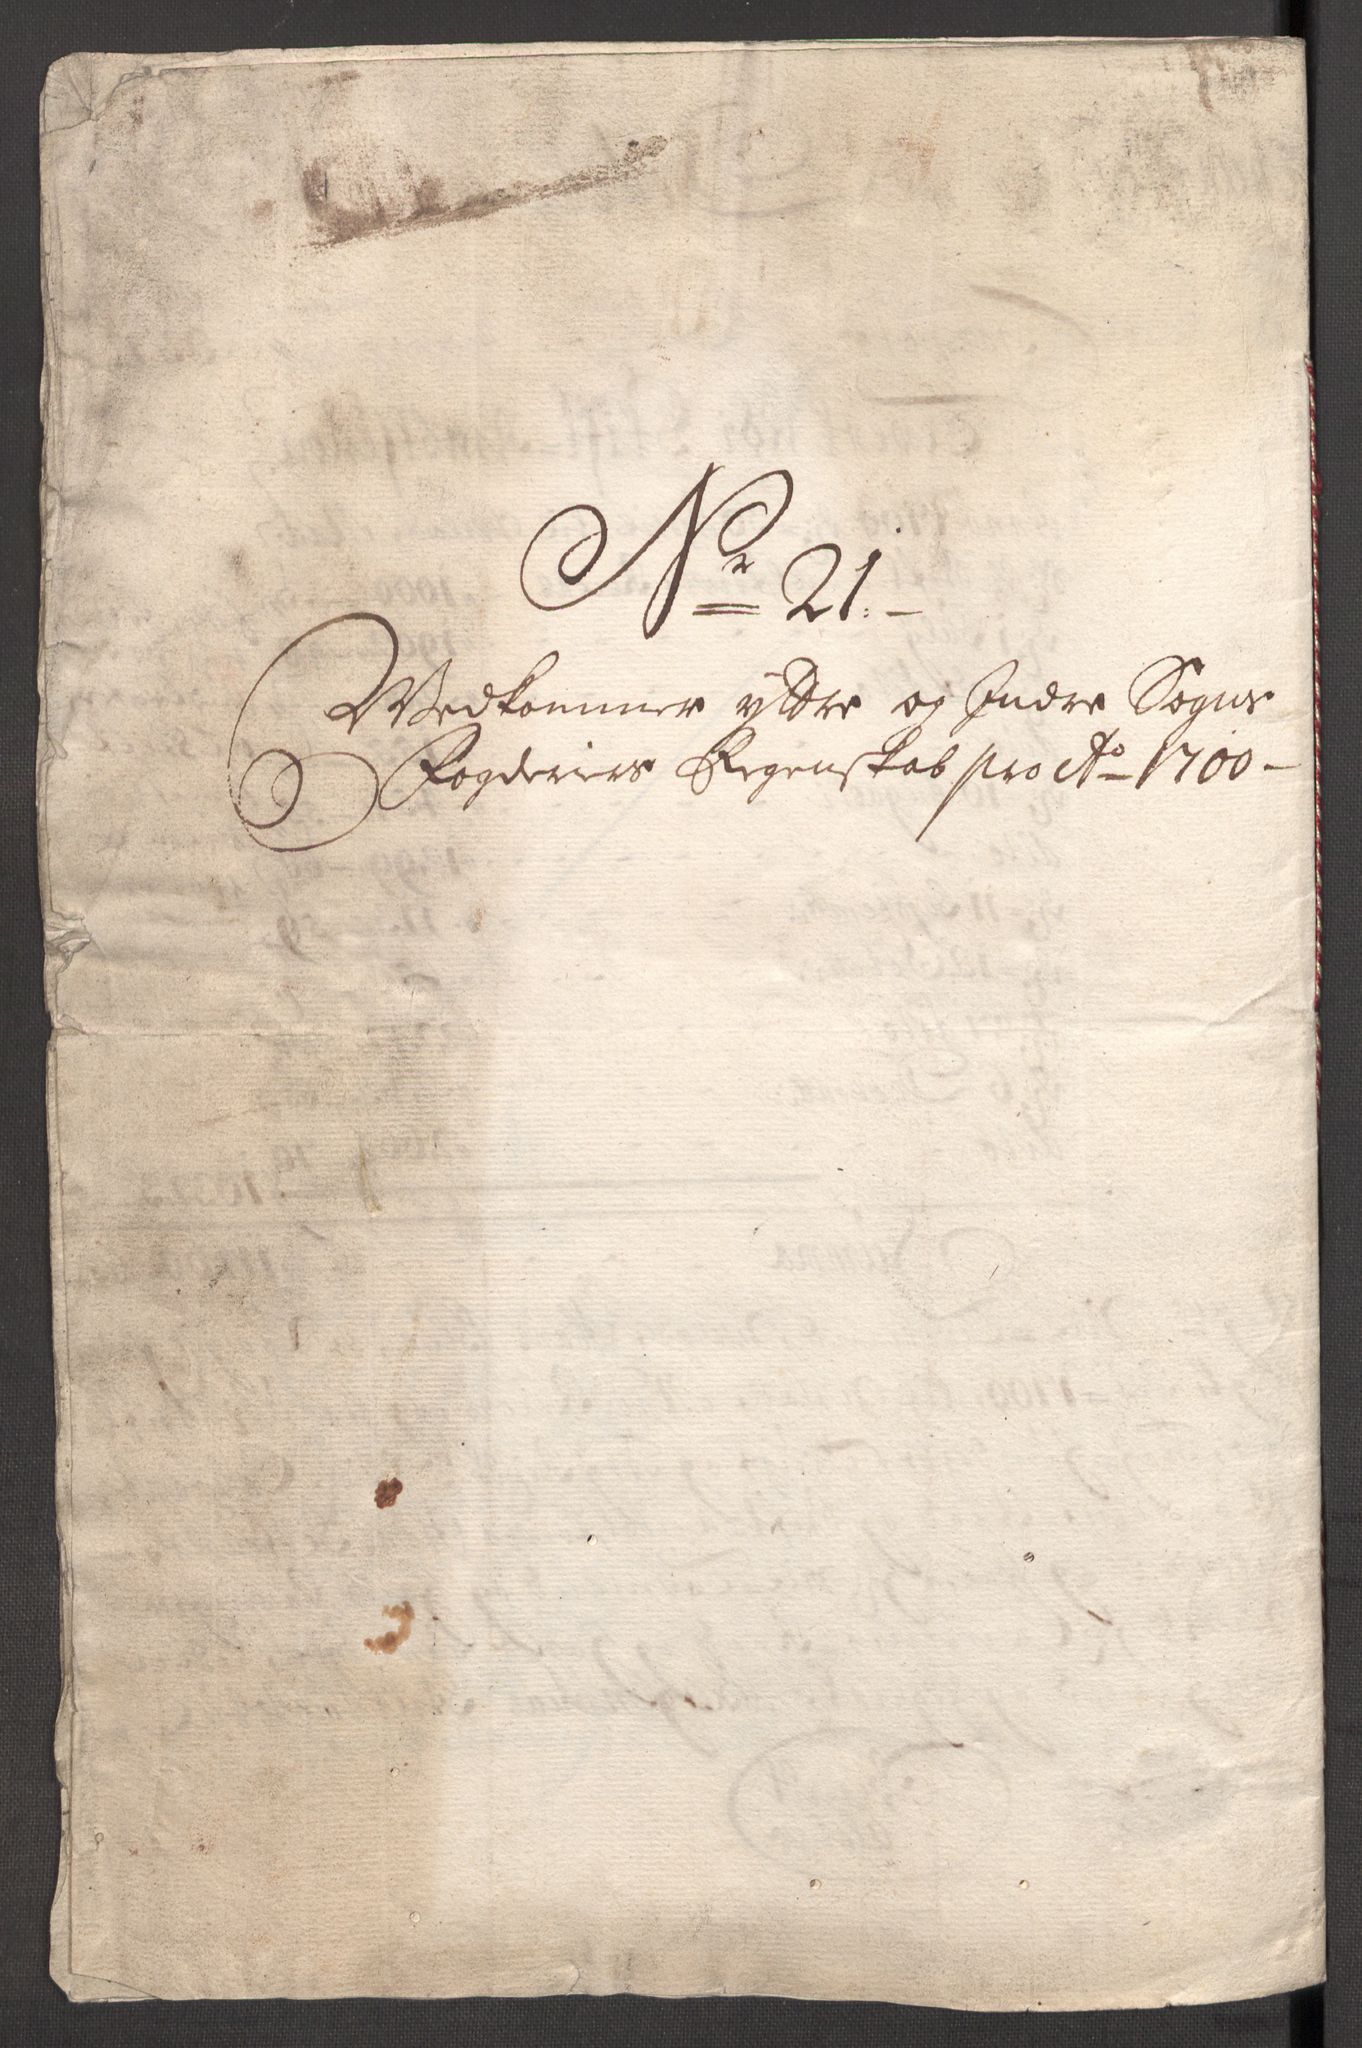 Nr 21.
Vedkommer yttre og Indre Sogns
Fogderiers Regenskab pro Ao 1700